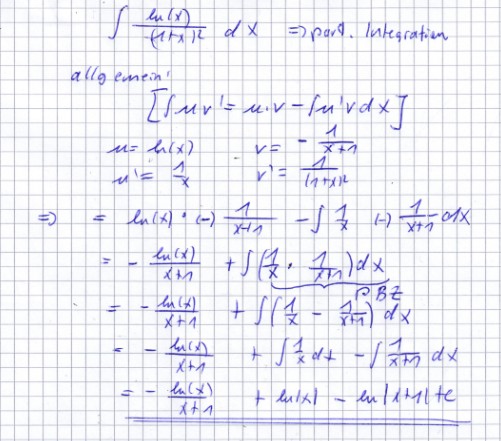 ∫ ln(x)/(1+x)² dx ⇒ part. Integration
allgemein:
[∫ u v' = u·v − ∫ u'v dx]
u = ln(x) v = − 1/(x+1)
u' = 1/x v' = 1/(1+x)²
⇒ = ln(x) · (−) 1/(x+1) − ∫ 1/x (−) 1/(x+1) dx
= − ln(x)/(x+1) + ∫ (1/x · 1/(x+1)) dx
PBZ
= − ln(x)/(x+1) + ∫ (1/x − 1/(x+1)) dx
= − ln(x)/(x+1) + ∫ 1/x dx − ∫ 1/(x+1) dx
= − ln(x)/(x+1) + ln|x| − ln|x+1| + c